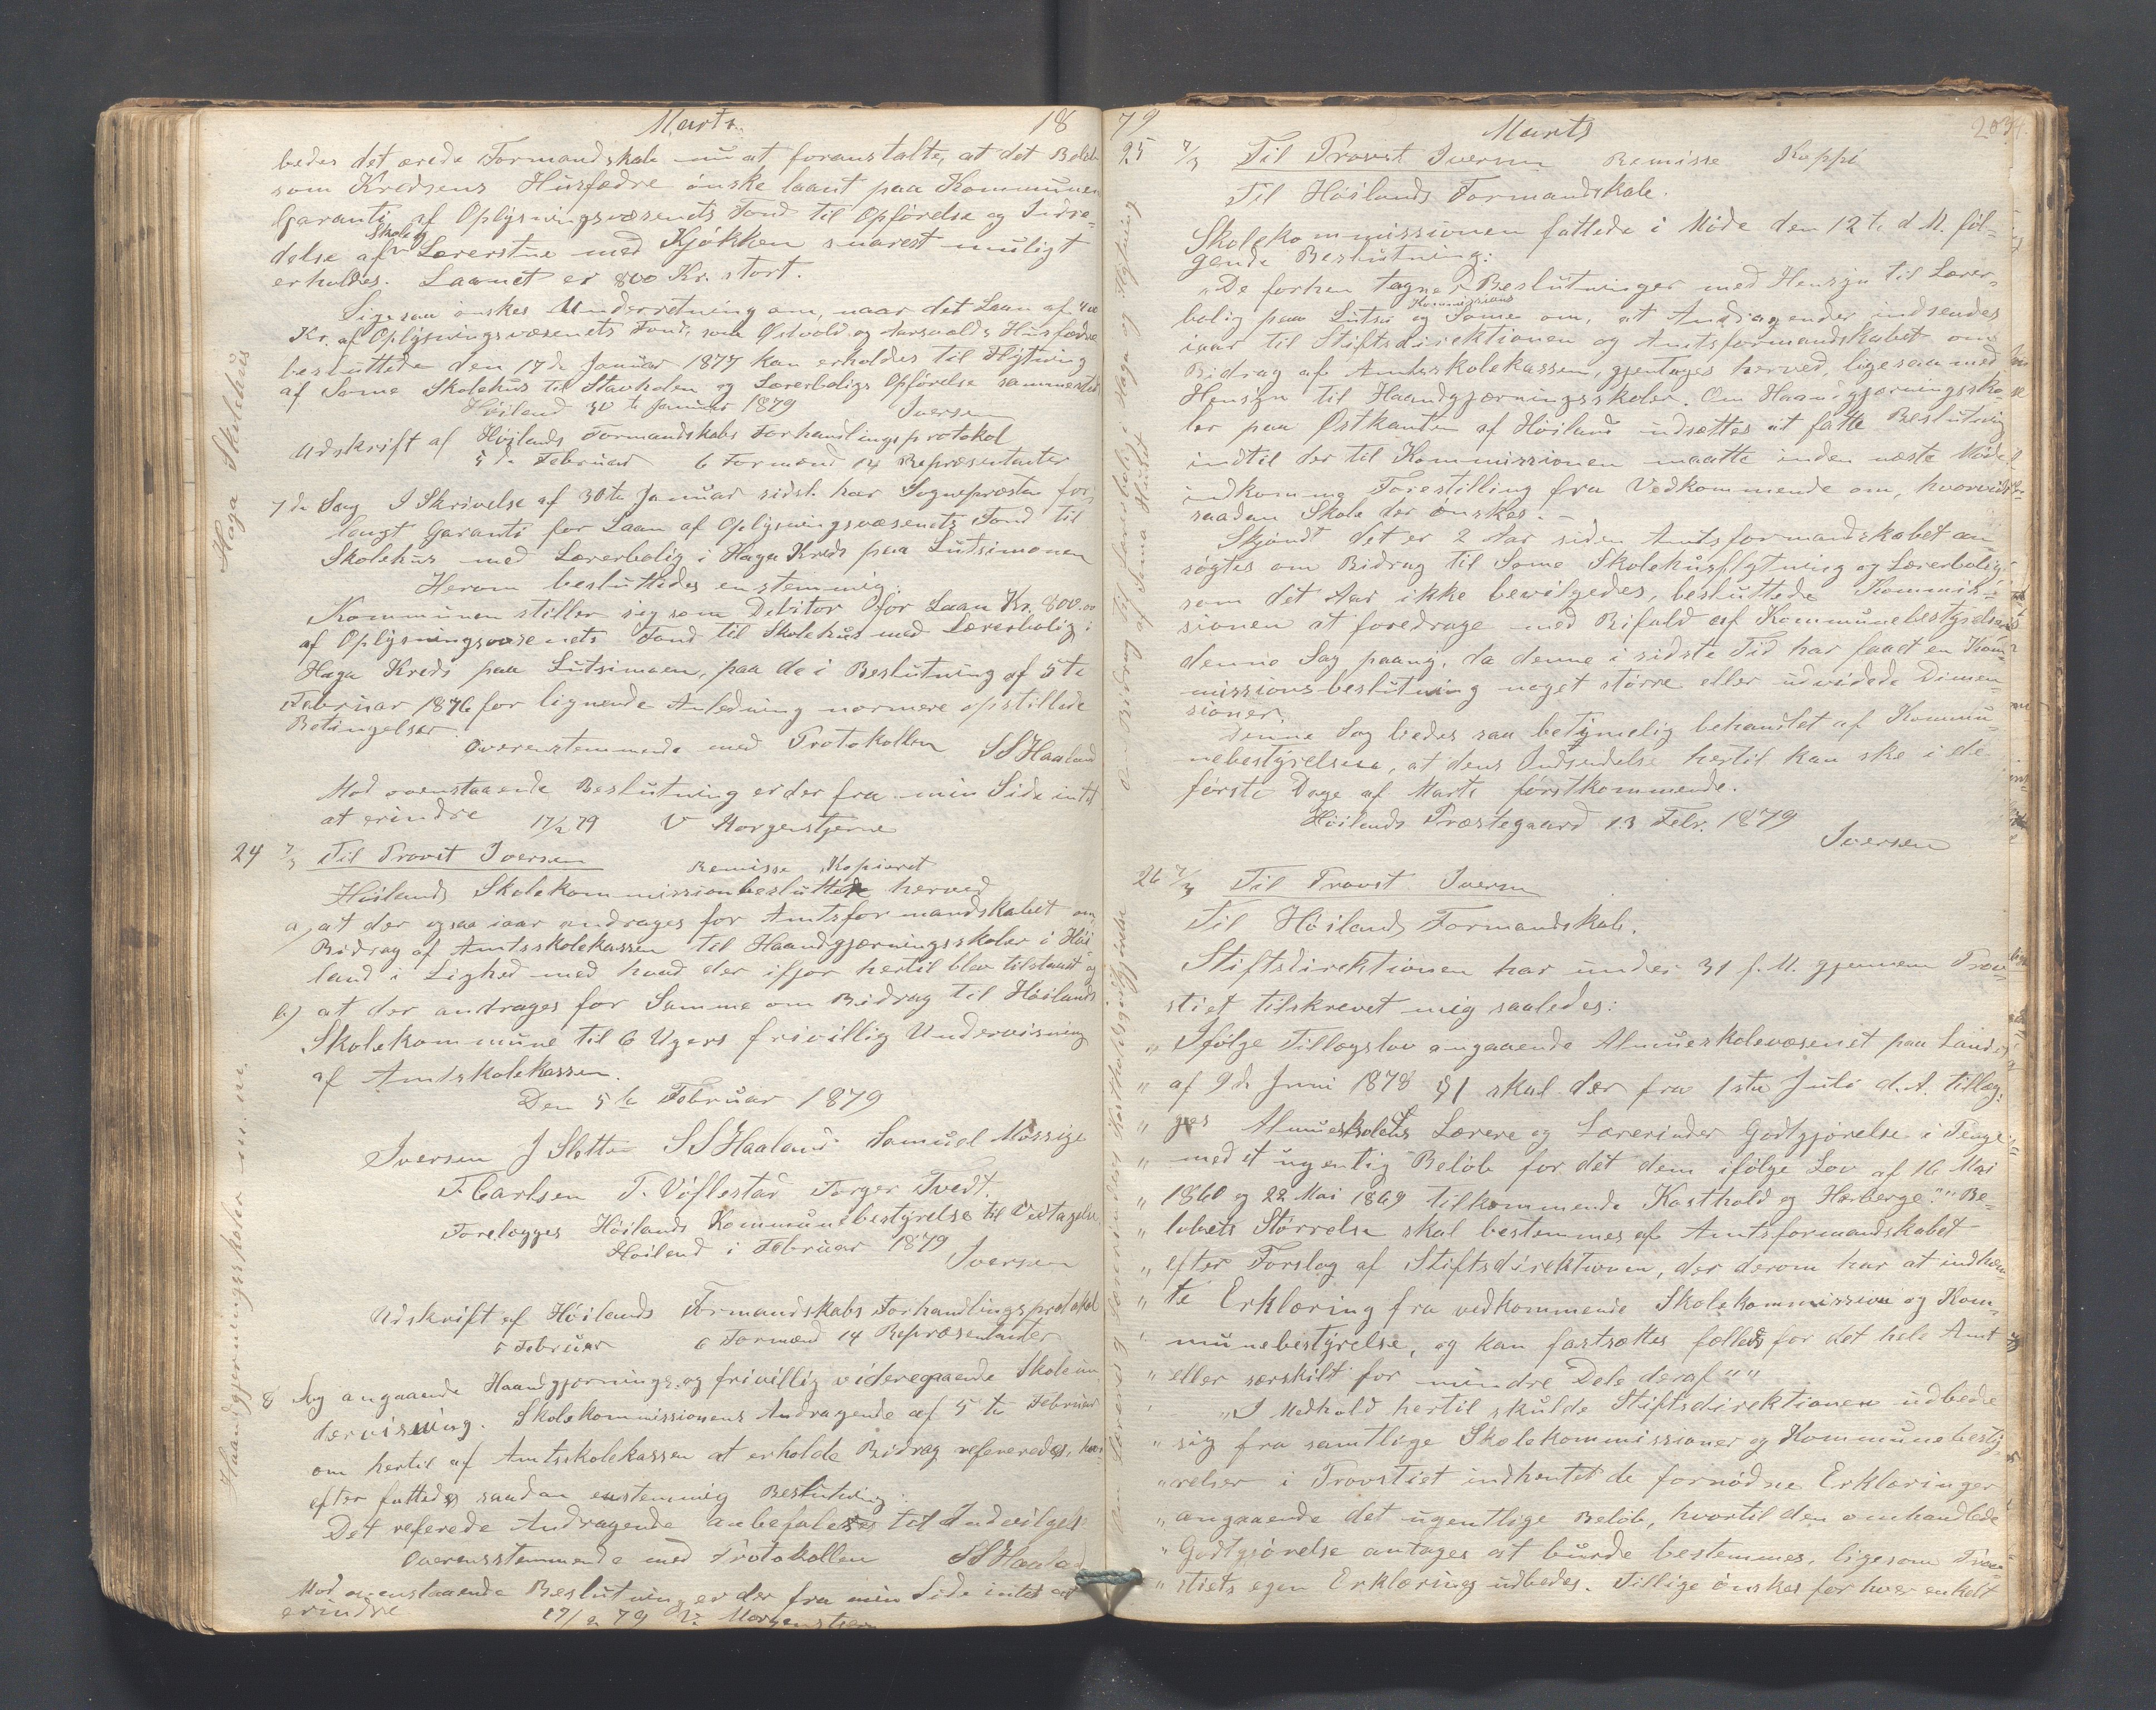 Marts 18
bedes det ærede Formandskab nu at foranstalte, at det Beløb
som Kredsens Husfædre ønske laant paa Kommunens
Garanti af Oplysningsvæsenets Fond til Opførelse og Indre-
delse af Skole og Lærerstue med Kjøkken snarest muligt
erholdes. Laanet er 800 Kr. stort.
Ligesaa ønskes Underretning om, naar det Laan af 400
Kr. af Oplysningsvæsenets Fond, som Husfædre
besluttede den 17de Januar 1877 kan erholdes til Flytning
af Some Skolehus til Stavholen og Lærerboligs Opførelse sammesteds
Høiland 30te Januar 1879 Iversen
Udskrift af Høilands Formandskabs Forhandlingsprotokol
5te Februar 6 Formænd 14 Repræsentanter
7de Sag I Skrivelse af 30te Januar sidst. har Sognepræsten for-
langt Garanti for Laan af Oplysningsvæsenets Fond til
Skolehus med Lærerbolig i Haga Kreds paa Lutsimoen
Herom besluttedes enstemmig:
Kommunen stiller sig som Debitor for Laan Kr. 800.00
af Oplysningsvæsenets Fond til Skolehus med Lærerbolig i
Haga Kreds paa Lutsimoen, paa de i Beslutning af 5te
Februar 1876 for lignende Anledning nærmere opstillede
Betingelser.
Overenstemmende med Protokollen SS Haaland
Mod ovenstaaende Beslutning er der fra min Side intet
at erindre 17/2 79 V Morgenstjerne
Haga Skolehus
24 7/3 Til Provst Iversen Remisse Kopieret
Høilands Skolekommission besluttede herved
a) at der ogsaa iaar andrages for Amtsformandskabet om
Bidrag af Amtsskolekassen til Haandgjærningsskoler i Høi
land i Lighed med hvad der ifjor hertil blev tilstaaet og
b) at der andrages for Samme om Bidrag til Høilands
Skolekommune til 6 Ugers frivillig Undervisning
af Amtskolekassen.
Den 5te Februar 1879
Iversen J Sletten SS Haaland Samuel Mossige
F. Carlsen T. Vøllestad Torger Tvedt.
Forelægges Høilands Kommunebestyrelse til Vedtagelse.
Høiland i Februar 1879 Iversen
Udskrift af Høilands Formandskabs Forhandlingsprotokol
5 Februar 6 Formænd 14 Repræsentanter
8 Sag angaaende Haandgjærnings og frivillig videregaaende Skoleun
dervisning. Skolekommissionens Andragende af 5te Februar
om hertil af Amtsskolekassen at erholde Bidrag refereredes, hvor-
efter fattedes saadan enstemmig Beslutning:
Det referede Andragende anbefales til Indvilgelse
Overensstemmende med Protokollen SS Haaland
Mod ovenstaaende Beslutning er der fra min Side intet at
erindre 17/2 79 V. Morgenstjerne
Haandgjerningsskoler m. m.
79 Marts 203
25 7/3 Til Provst Iversen Remisse Koppi
Til Høilands Formandskab.
Skolekommissionen fattede i Møde den 12te d.M. føl-
gende Beslutning:
"De forhen tagne Beslutninger med Hensyn til Lærer-
bolig paa Lutsi og Some om, at Kommissions Andragender indsendes
iaar til Stiftsdirektionen og Amtsformandskabet om
Bidrag af Amtsskolekassen, gjentages herved, ligesaa med
Hensyn til Haandgjærningsskoler. Om Haandgjærningssko-
ler paa Østkanten af Høiland udsættes at fatte Beslutning
indtil der til Kommissionen maatte inden næste Møde
indkomme Forestilling fra Vedkommende om, hvorvidt
saadan Skole der ønskes. -
Skjøndt det er 2 Aar siden Amtsformandskabet an-
søgtes om Bidrag til Some Skolehusflytning og Lærerbolig,
som det Aar ikke bevilgedes, besluttede Kommis-
sionen at foredrage med Bifald af Kommunebestyrelsen
denne Sag paany, da denne i sidste Tid har faaet en Kom-
missionsbeslutning noget større eller udvidede Dimen-
sioner.
Denne Sag bedes saa betimelig behandlet af Kommu-
nebestyrelsen, at dens Indsendelse hertil kan ske i de
første Dage af Marts førstkommende.
Høilands Præstegaard 13 Febr. 1879
Iversen
26 7/3 Til Provst Iversen
Til Høilands Formandskab.
Stiftsdirektionen har under 31 f. M. gjennem Prov-
stiet tilskrevet mig saaledes:
" Ifølge Tillægslov angaaende Almueskolevæsenet paa Landet
" af 9de Juni 1878 §1 skal der fra 1ste Juli d. A. tillæg-
" ges Almueskolens Lærere og Lærerinder Godtgjørelse i Penge
" med et ugentlig Beløb for det dem ifølge Lov af 16 Mai
" 1860 og 22 Mai 1869 tilkommende Kosthold og Herberge."" Be-
" løbets Størrelse skal bestemmes af Amtsformandskabet
" efter Forslag af Stiftsdirektionen, der derom har at indhen-
" te Erklæring fra vedkommende Skolekommission og Kom-
" munebestyrelse, og kan fastsættes fælleds for det hele Amt
" eller særskilt for mindre Dele deraf""
" "I Medhold hertil skulde Stiftsdirektionen udbede
" sig fra samtlige Skolekommissioner og Kommunebesty-
" relser i Provstiet indhentet de fornødne Erklæringer
" angaaende det ugentlige Beløb, hvortil den omhandlede
" Godtgjørelse antages at burde bestemmes, ligesom Prov-
" stiets egen Erklæring udbedes. Tillige ønskes for hver enkelt
Om Bidrag til Lærerbolig i Haga og Flytning
af Soma Huset